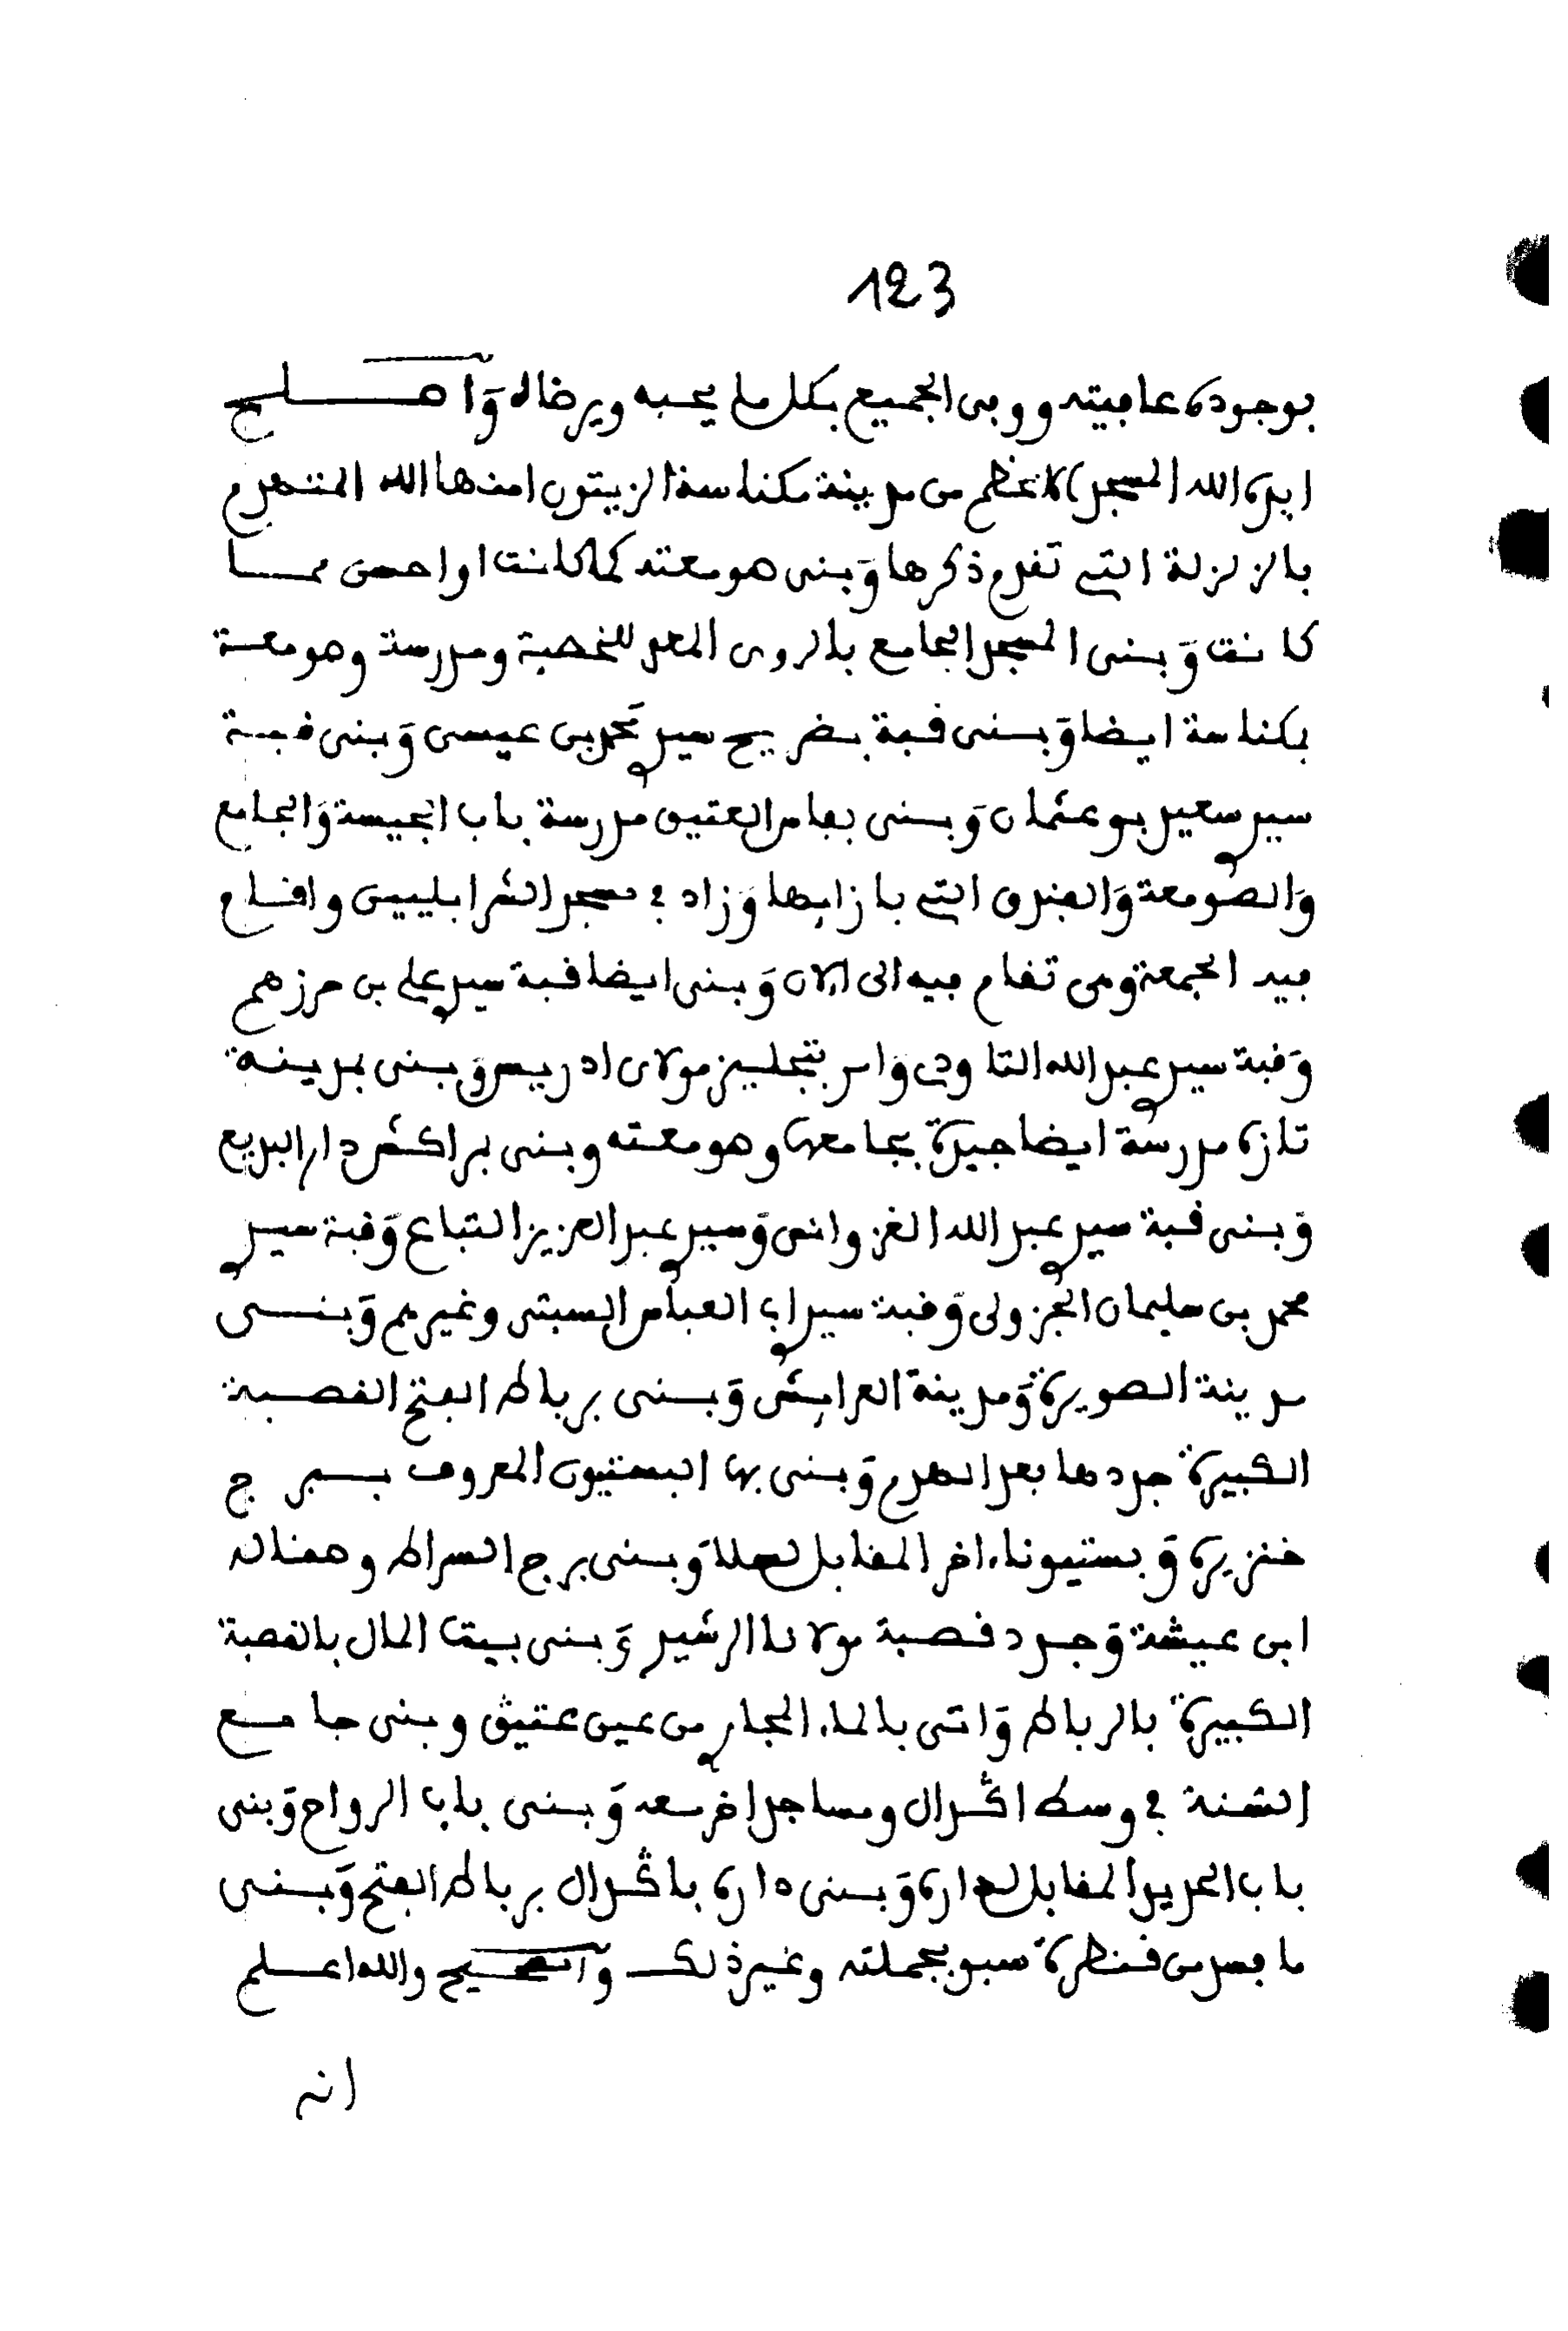 123
بوجوده عافيته ووفى الجميع بكل ما يحبه ويرضاه وَاصلح
ايده الله المسجد الاعظم من مدينة مكناسة الزيتون امنها الله المتهدم
بالزلزلة التي تقدم ذكرها وَبنى صومعته كما كانت او احسن مما
كانت وَبنى المسجد الجامع بالروى المعد للخطبة ومدرسة وصومعة
بمكناسة ايضا وَبنى قبة بضريح سيدي محمد بن عيسى وَبنى قبة
سيدي سعيد بوعثمان وَبنى بفاس العتيق مدرسة باب الجيسة وَالجامع
وَالصومعة وَالفندق التي بازايها وَزاد في مسجد الشرابليين واقام
فيه الجمعة وهي تقام فيه الى الان وَبنى ايضا قبة سيدي علي بن حرزهم
وَقبة سيدي عبد الله التاودي وَامر بتجليز مولاي ادريس وَبنى بمدينة
تازه مدرسة ايضا جيدة بجامعها وصومعته وبنى بمراكش دار البديع
وَبنى قبة سيدي عبد الله الغزواني وَسيدي عبد العزيز التباع وَقبة سيدي
محمد بن سليمان الجزولي وَقبة سيدي ابي العباس السبتي وغيرهم وَبنى
مدينة الصويرة وَمدينة العرايش وَبنى برباط الفتح القصبة
الكبيرة جددها بعد الهدم وَبنى بها البستيون المعروف ببرج
خنزيره وَبستيونا ءاخر المقابل لسلا وَبنى برج السراط وهنالك
ابن عيشة وَجدد قصبة مولانا الرشيد وَبنى بيت المال بالقصبة
الكبيرة بالرباط وَاتى بالماء الجاري من عين عتيق وبنى جامع
السنة في وسط اكدال ومساجد اخر معه وَبنى باب الرواح وَبنى
باب الحديد المقابل لداره وَبنى داره باكدال برباط الفتح وَبنى
ما فسد من قنطرة سبو بجملته وغير ذلك وَالصحيح والله اعلم
انه